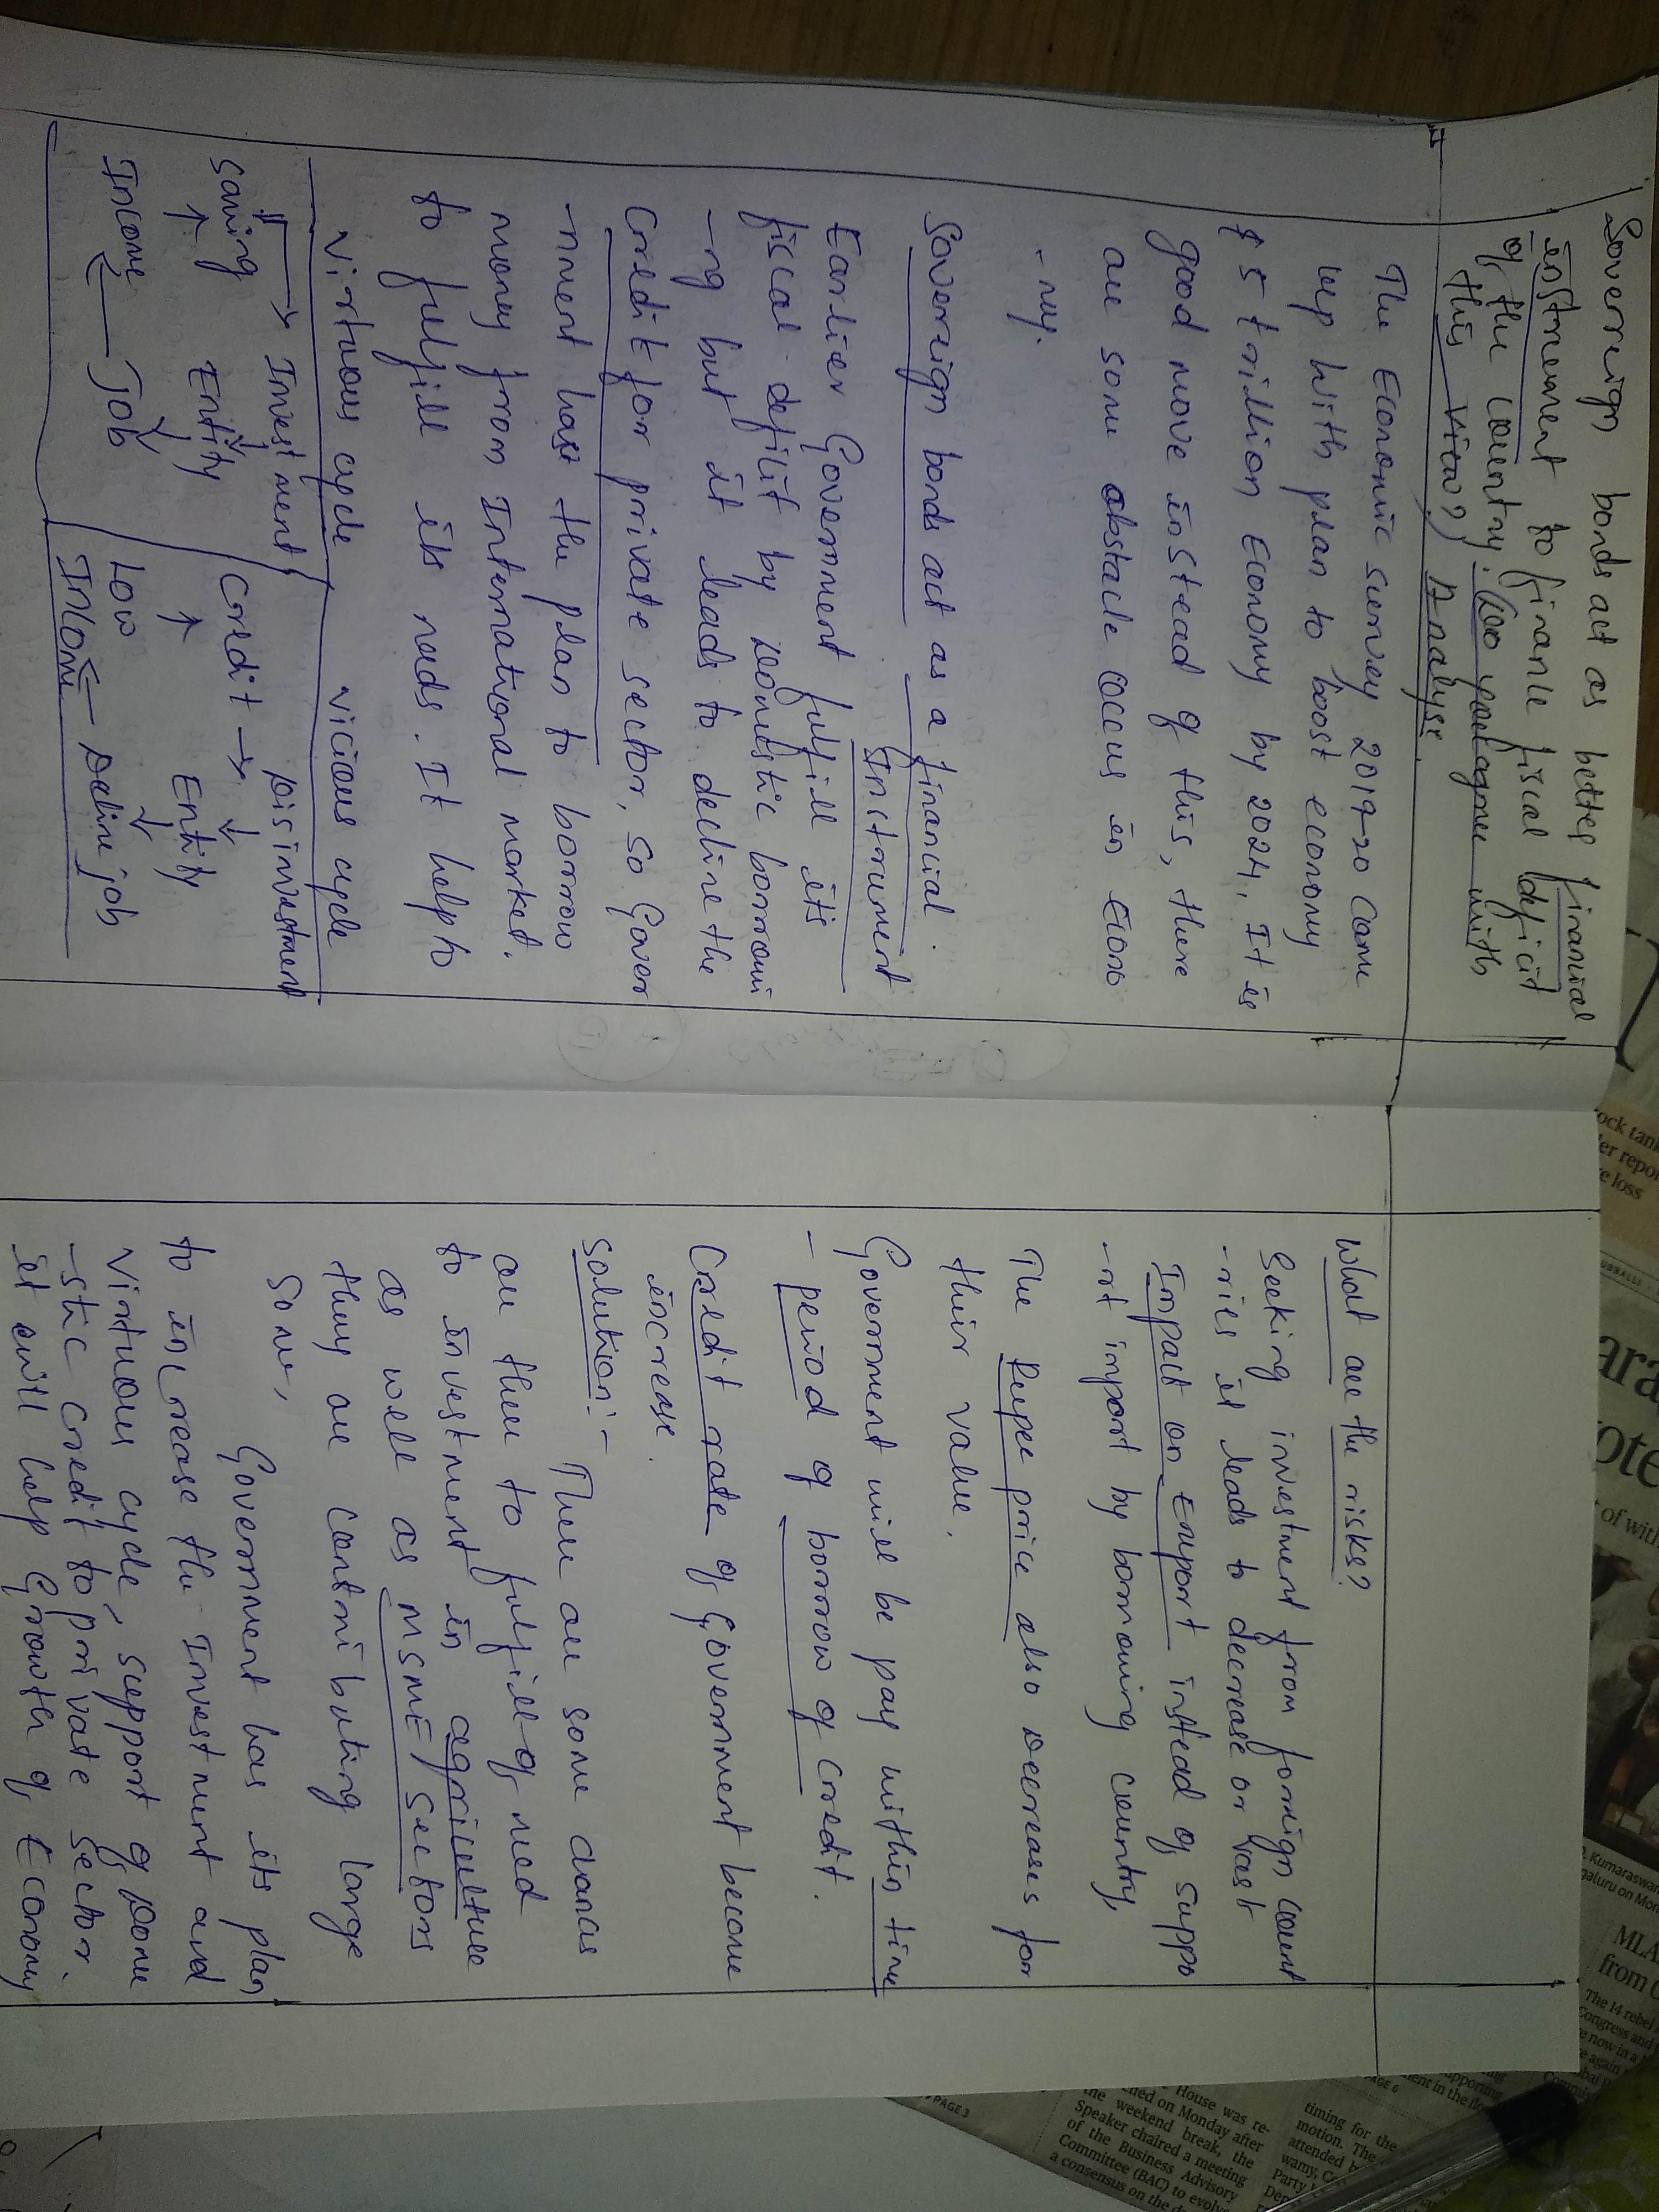 Sovereign bonds act as better financial
instrument to finance fiscal deficit
of the country. Do you agree with
this view? Analyse.
The Economic survey 2019-20 came
up with plan to boost economy
$ 5 trillion Economy by 2024. It is
good move instead of this, there
are some obstacle occurs in Econo
-my.
Sovereign bonds act as a financial
Instrument
Earlier Government fulfill its
fiscal deficit by domestic borrowi
-ng but it leads to decline the
Credit for private sector, so Gover
-nment has the plan to borrow
money from International market.
to fulfill its needs. It help to
Virtuous cycle
Saving → Investment
↑ Entity
Income Job
Vicious cycle
Disinvestment
Credit → Entity
↑
Low
Income Decline job
What are the risks?
Seeking investment from foreign count
-ries it leads to decrease or vast
Impact on Export instead of suppo
-rt import by borrowing country,
The Rupee price also decreases for
their value.
Government will be pay within time
- period of borrow of credit.
Credit rate of Government become
increase.
Solution:- There are some chances
are there to fulfill of need
to investment in agriculture
as well as MSME/sectors
they are contributing large
Some,
Government has its plan
to increase the Investment and
Virtuous cycle, support of Dome
-stic credit to private sector.
it will help Growth of Economy
ock tank
er repor
e loss
ara
ote
of with
Kumaraswam
galuru on Mon
MLA
from C
The 14 rebel
Congress and
House was re-
ned on Monday after
the weekend break, the
Speaker chaired a meeting
of the Business Advisory
Committee (BAC) to evolve
a consensus on the
timing for the
motion. The
attended b
wamy, C
Party
PAGE 3
PAGE 6